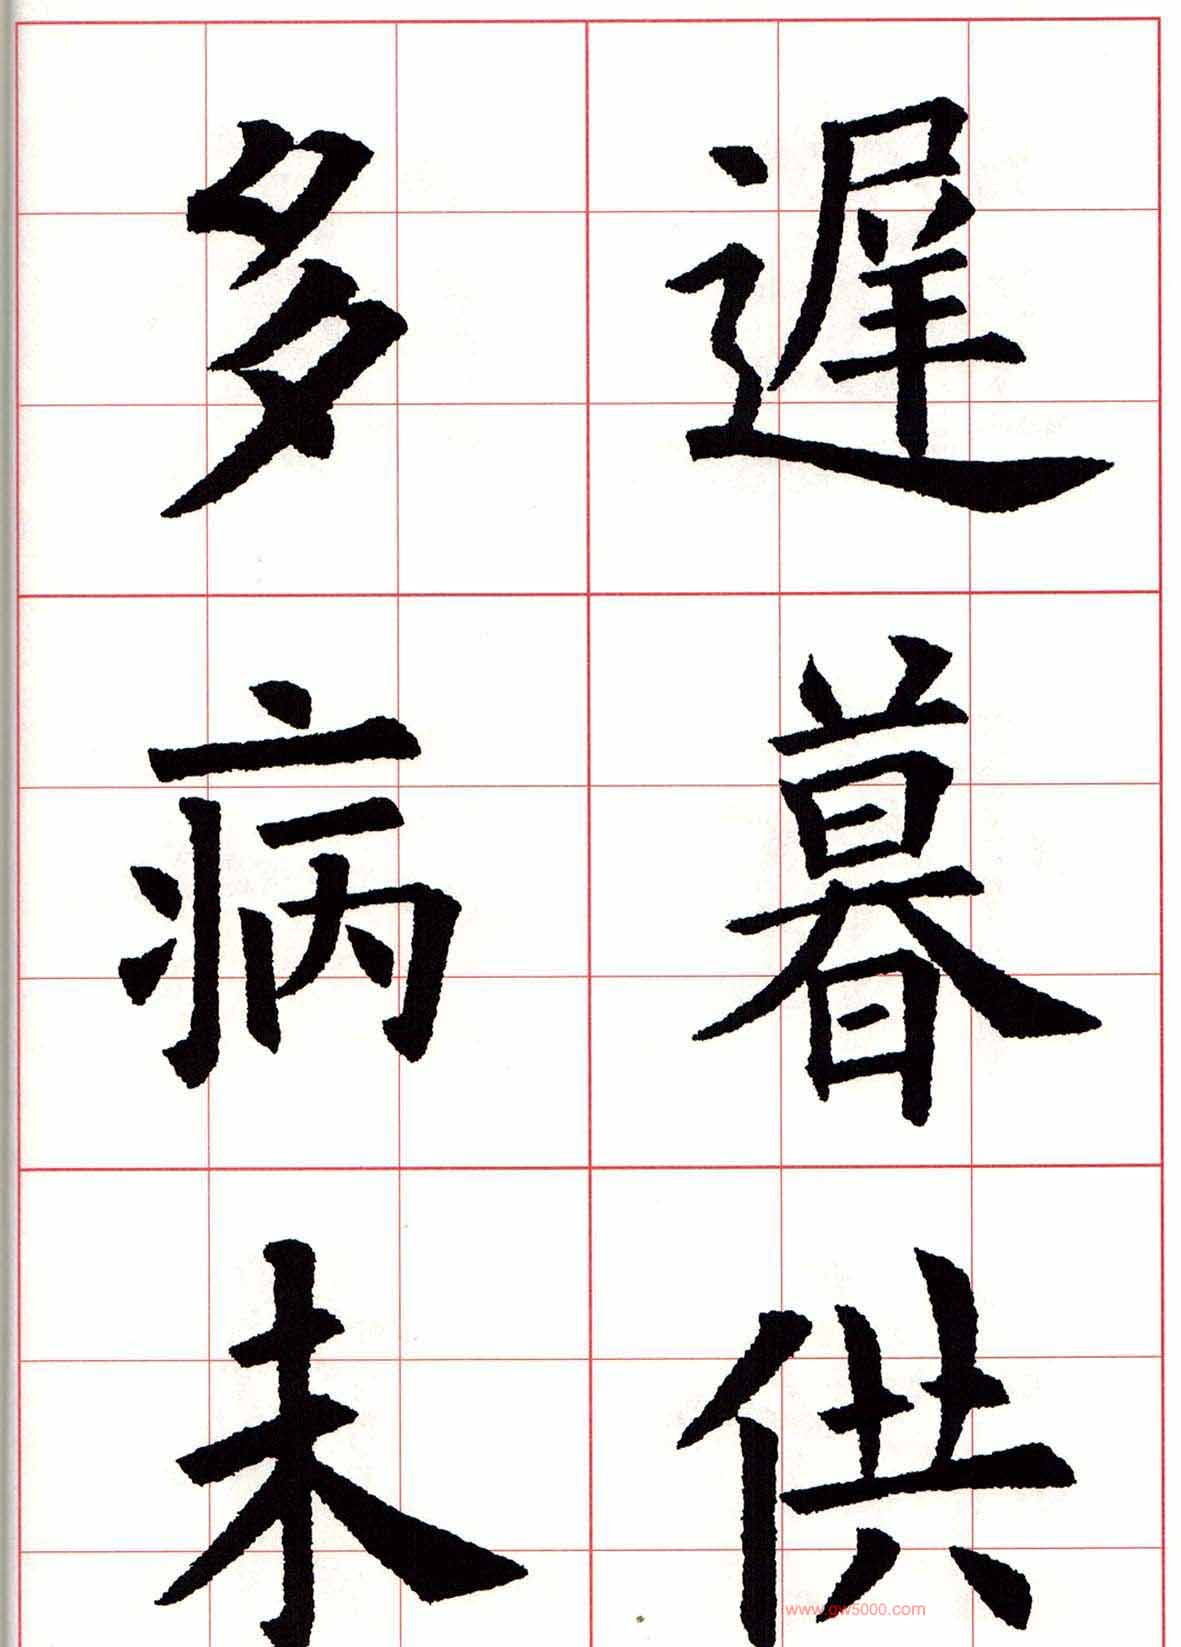 遲暮供
多病未
www.gw5000.com